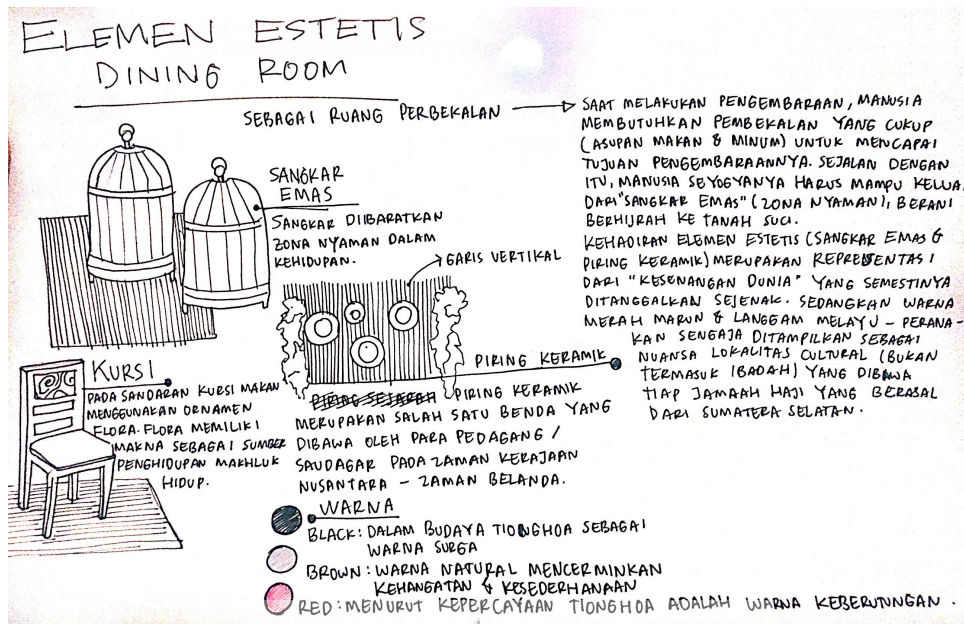 ELEMEN ESTETIS
DINING ROOM
SEBAGAI RUANG PERBEKALAN
SAAT MELAKUKAN PENGEMBARAAN, MANUSIA
MEMBUTUHKAN PEMBEKALAN YANG CUKUP
(ASUPAN MAKAN & MINUM) UNTUK MENCAPAI
TUJUAN PENGEMBARAANNYA. SEJALAN DENGAN
ITU, MANUSIA SEYOGYANYA HARUS MAMPU KELUA
DARI "SANGKAR EMAS" (ZONA NYAMAN), BERANI
BERHIJRAH KE TANAH SUCI.
KEHADIRAN ELEMEN ESTETIS (SANGKAR EMAS &
PIRING KERAMIK) MERUPAKAN REPRESENTASI
DARI "KESENANGAN DUNIA" YANG SEMESTINYA
DITANGGALKAN SEJENAK. SEDANGKAN WARNA
MERAH MARUN & LANGGAM MELAYU - PERANA-
KAN SENGAJA DITAMPILKAN SEBAGAI
NUANSA LOKALITAS CULTURAL (BUKAN
TERMASUK IBADAH) YANG DIBAWA
TIAP JAMAAH HAJI YANG BERASAL
DARI SUMATERA SELATAN.
SANGKAR
EMAS
SANGKAR DIIBARATKAN
ZONA NYAMAN DALAM
KEHIDUPAN.
GARIS VERTIKAL
KURSI
PADA SANDARAN KURSI MAKAN
MENGGUNAKAN ORNAMEN
FLORA. FLORA MEMILIKI
MAKNA SEBAGAI SUMBER
PENGHIDUPAN MAKHLUK
HIDUP.
PIRING KERAMIK
PIRING SEJARAH PIRING KERAMIK
MERUPAKAN SALAH SATU BENDA YANG
DIBAWA OLEH PARA PEDAGANG /
SAUDAGAR PADA ZAMAN KERAJAAN
NUSANTARA - ZAMAN BELANDA.
WARNA
BLACK: DALAM BUDAYA TIONGHOA SEBAGAI
WARNA SURGA
BROWN: WARNA NATURAL MENCERMINKAN
KEHANGATAN & KESEDERHANAAN
RED: MENURUT KEPERCAYAAN TIONGHOA ADALAH WARNA KEBERUTUNGAN.